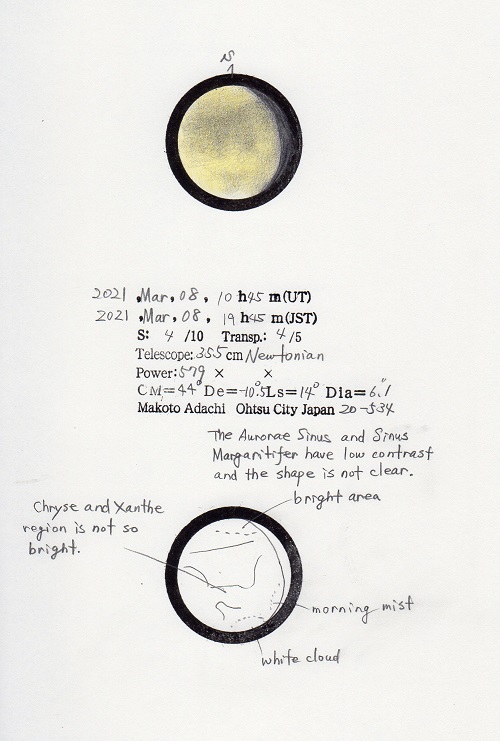 S
2021 ,Mar, 08, 10 h45 m(UT)
2021 ,Mar, 08, 19 h45 m(JST)
S: 4 /10 Transp.: 4 /5
Telescope: 355 cm Newtonian
Power: 579 × ×
CM=44° De=-10.5° Ls=14° Dia=6.1"
Makoto Adachi Ohtsu City Japan 20-534
The Aurorae Sinus and Sinus
Margaritifer have low contrast
and the shape is not clear.
bright area
Chryse and Xanthe
region is not so
bright.
morning mist
white cloud